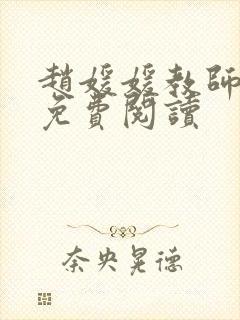 趙媛媛教師
免費閱讀
奈央晃德